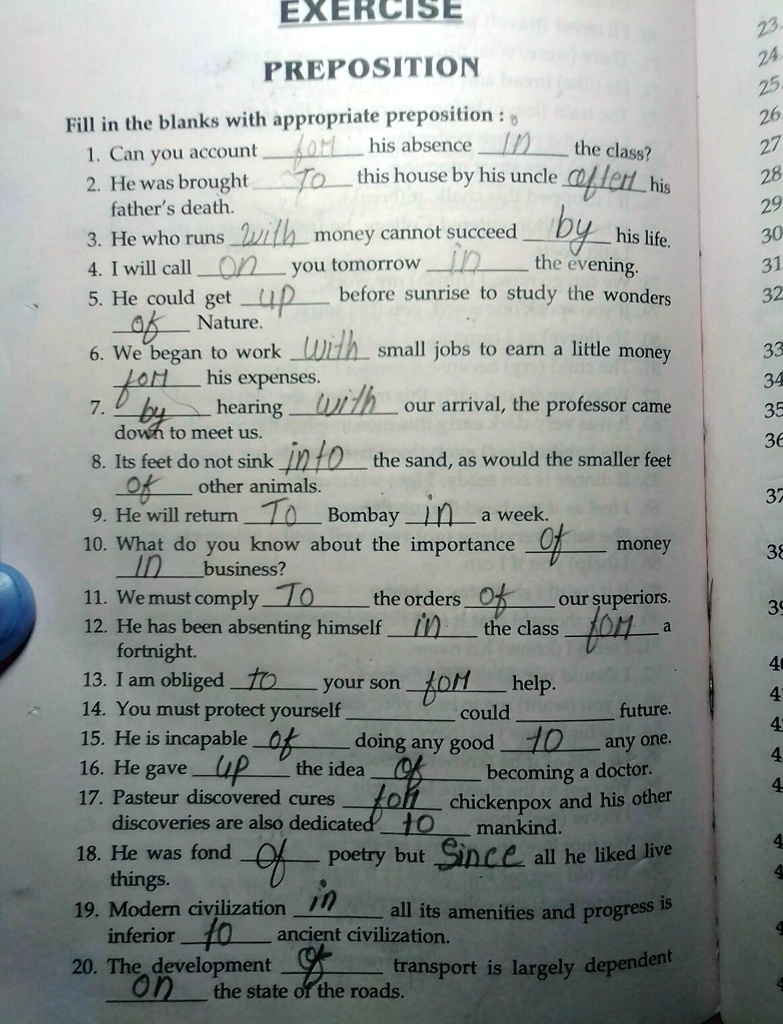 EXERCISE
PREPOSITION
Fill in the blanks with appropriate preposition :
1. Can you account for his absence in the class?
2. He was brought To this house by his uncle after his
father's death.
3. He who runs with money cannot succeed by his life.
4. I will call on you tomorrow in the evening.
5. He could get up before sunrise to study the wonders
of Nature.
6. We began to work with small jobs to earn a little money
for his expenses.
7. by hearing with our arrival, the professor came
down to meet us.
8. Its feet do not sink into the sand, as would the smaller feet
of other animals.
9. He will return To Bombay in a week.
10. What do you know about the importance of money
in business?
11. We must comply To the orders of our superiors.
12. He has been absenting himself in the class for a
fortnight.
13. I am obliged to your son for help.
14. You must protect yourself ________ could ________ future.
15. He is incapable of doing any good to any one.
16. He gave up the idea of becoming a doctor.
17. Pasteur discovered cures for chickenpox and his other
discoveries are also dedicated to mankind.
18. He was fond of poetry but Since all he liked live
things.
19. Modern civilization in all its amenities and progress is
inferior to ancient civilization.
20. The development of transport is largely dependent
on the state of the roads.
23.
24.
25.
26
27
28
29
30
31
32
33
34
35
36
37
38
39